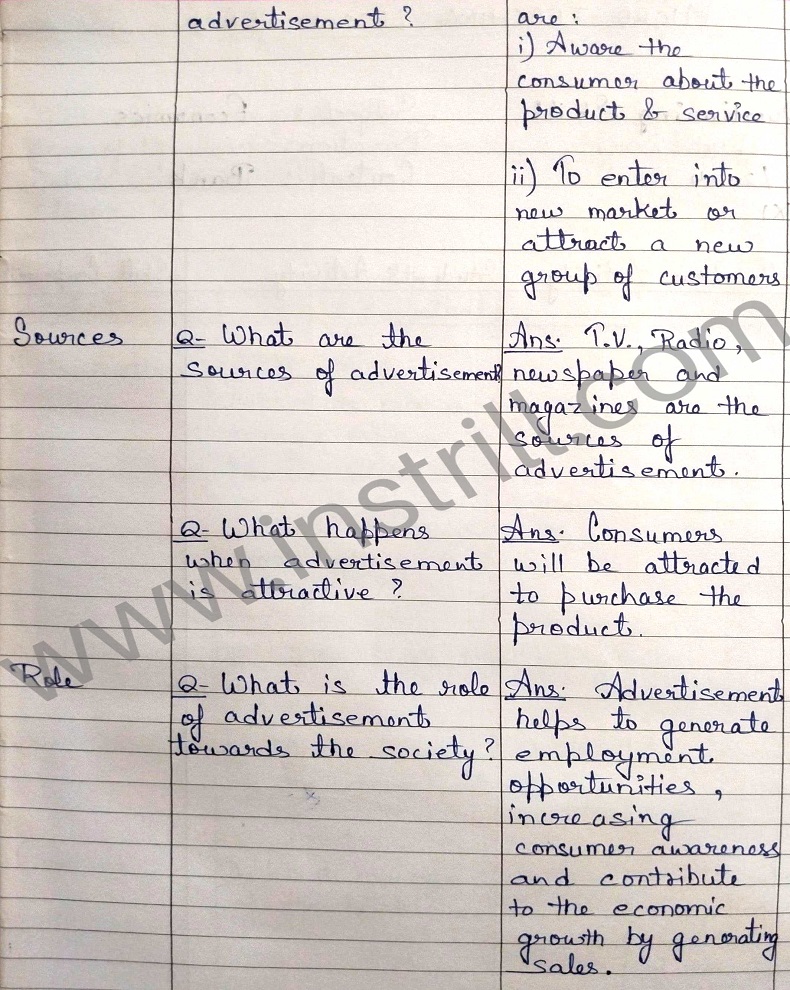 advertisement ?
are :
i) Aware the
consumer about the
product & service
ii) To enter into
new market or
attract a new
group of customers
Sources
Q- What are the
sources of advertisement?
Ans. T.V., Radio,
newspaper and
magazines are the
sources of
advertisement.
Q- What happens
when advertisement
is attractive ?
Ans. Consumers
will be attracted
to purchase the
product.
Role
Q- What is the role
of advertisement
towards the society?
Ans. Advertisement
helps to generate
employment.
opportunities,
increasing
consumer awareness
and contribute
to the economic
growth by generating
sales.
www.instrill.com